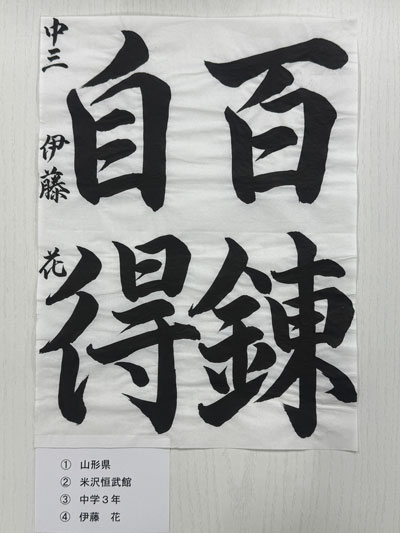 百錬
自得
中三 伊藤 花
① 山形県
② 米沢恒武館
③ 中学３年
④ 伊藤 花